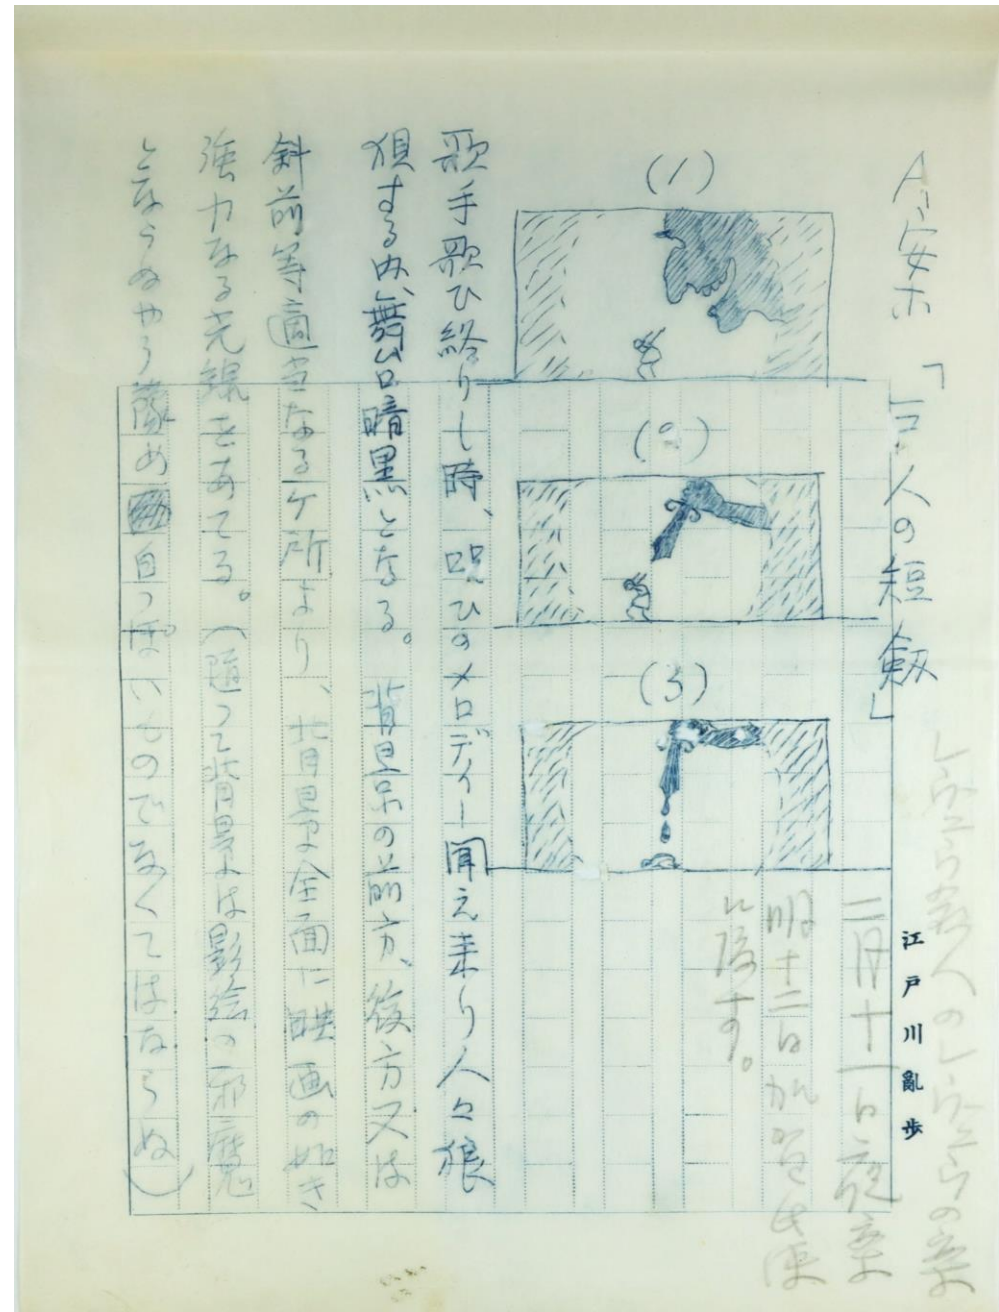 レヴュウ殺人のレヴュウの案
A案 「巨人の短剱」
江戸川亂歩
二月十一日夜案
明十二日
に渡す。
(1)
(2)
(3)
歌手歌ひ終りし時、呪ひのメロディー聞え来り人々狼
狽する内、舞台暗黒となる。背景の前方、後方又は
斜前等適当なるケ所より、背景全面に映画の如き
強力なる光線をあてる。(随って背景は影絵の邪魔
とならぬやう豫め白っぽいものでなくてはならぬ)